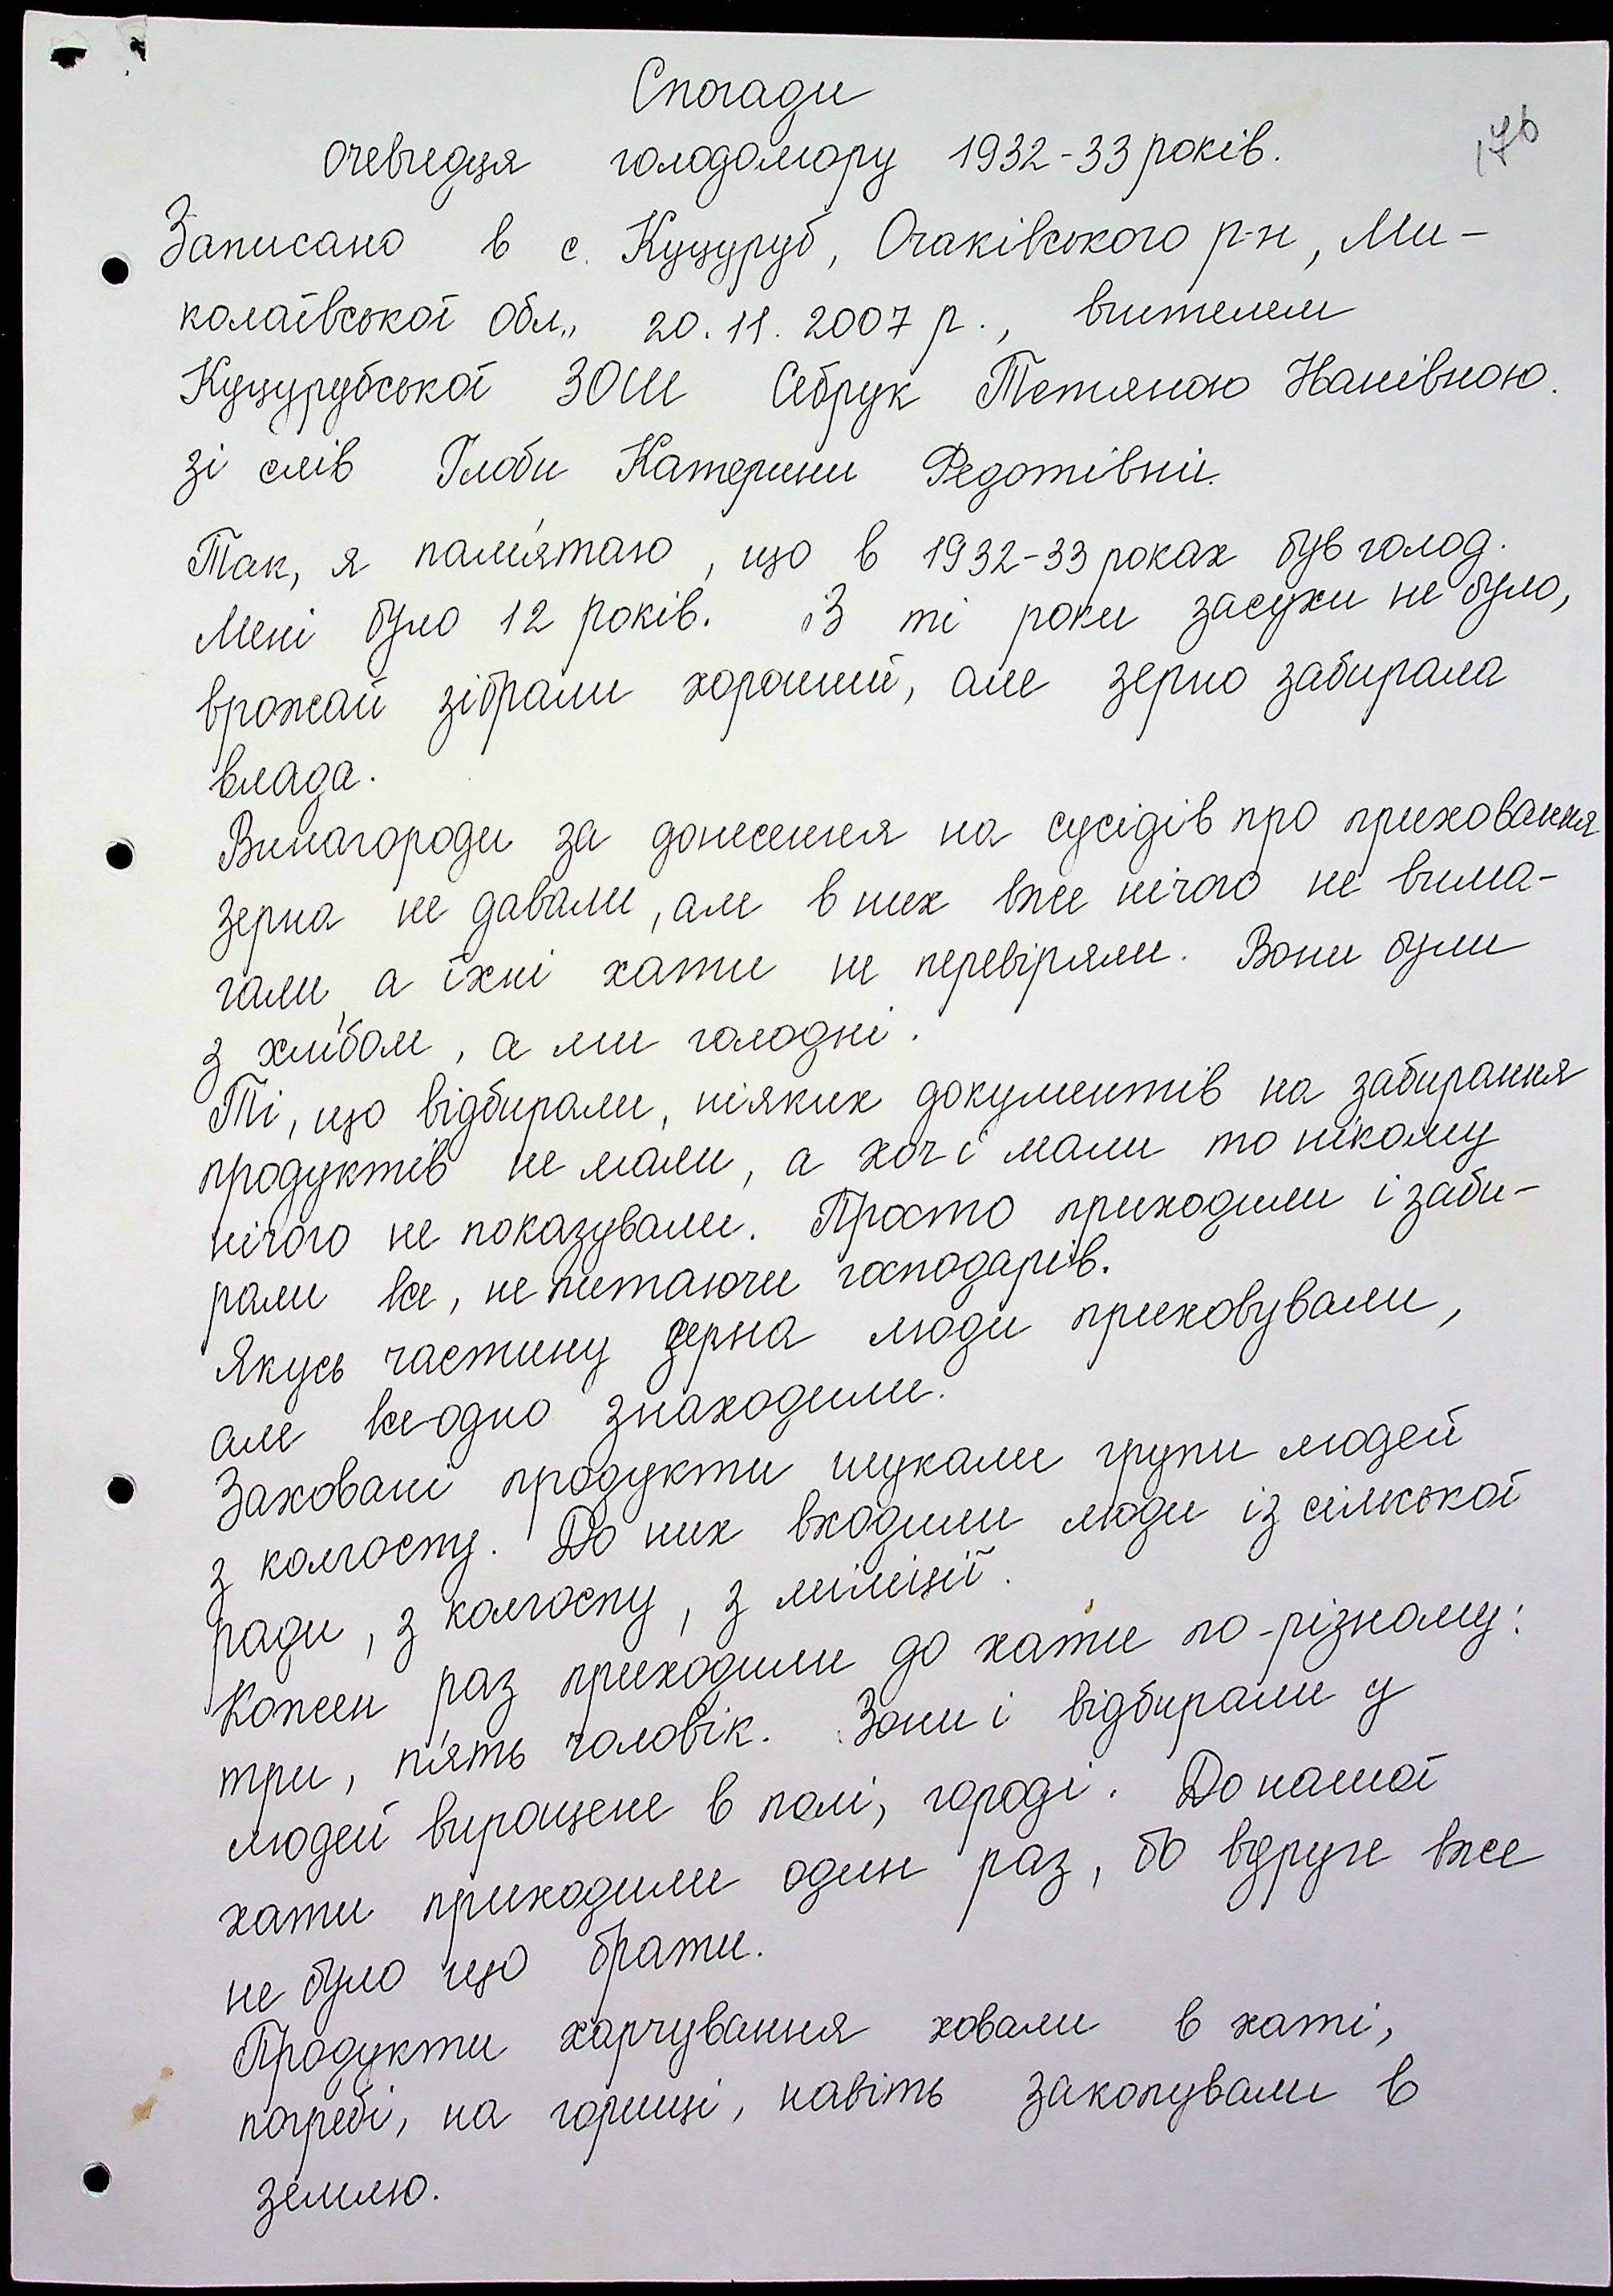 Спогади
очевидця голодомору 1932-33 років.
176
Записано в с. Куцуруб, Очаківського р-н, Ми-
колаївської обл., 20.11.2007 р., вчителем
Куцурубської ЗОШ Себрук Тетяною Нанівною.
зі слів Глоби Катерини Федотівни.
Так, я пам'ятаю, що в 1932-33 роках був голод.
Мені було 12 років. В ті роки засухи не було,
врожай зібрали хороший, але зерно забирала
влада.
Винагороди за донесення на сусідів про приховання
зерна не давали, але в них вже нічого не вима-
гали, а їхні хати не перевіряли. Вони були
з хлібом, а ми голодні.
Ті, що відбирали, ніяких документів на забирання
продуктів не мали, а хоч і мали то нікому
нічого не показували. Просто приходили і заби-
рали все, не питаючи господарів.
Якусь частину зерна люди приховували,
але все-одно знаходили.
Заховані продукти шукали групи людей
з колгоспу. До них входили люди із сільської
ради, з колгоспу, з міліції.
Кожен раз приходили до хати по-різному:
три, п'ять чоловік. Вони і відбирали у
людей вирощене в полі, городі. До нашої
хати приходили один раз, бо вдруге вже
не було що брати.
Продукти харчування ховали в хаті,
погребі, на горищі, навіть закопували в
землю.